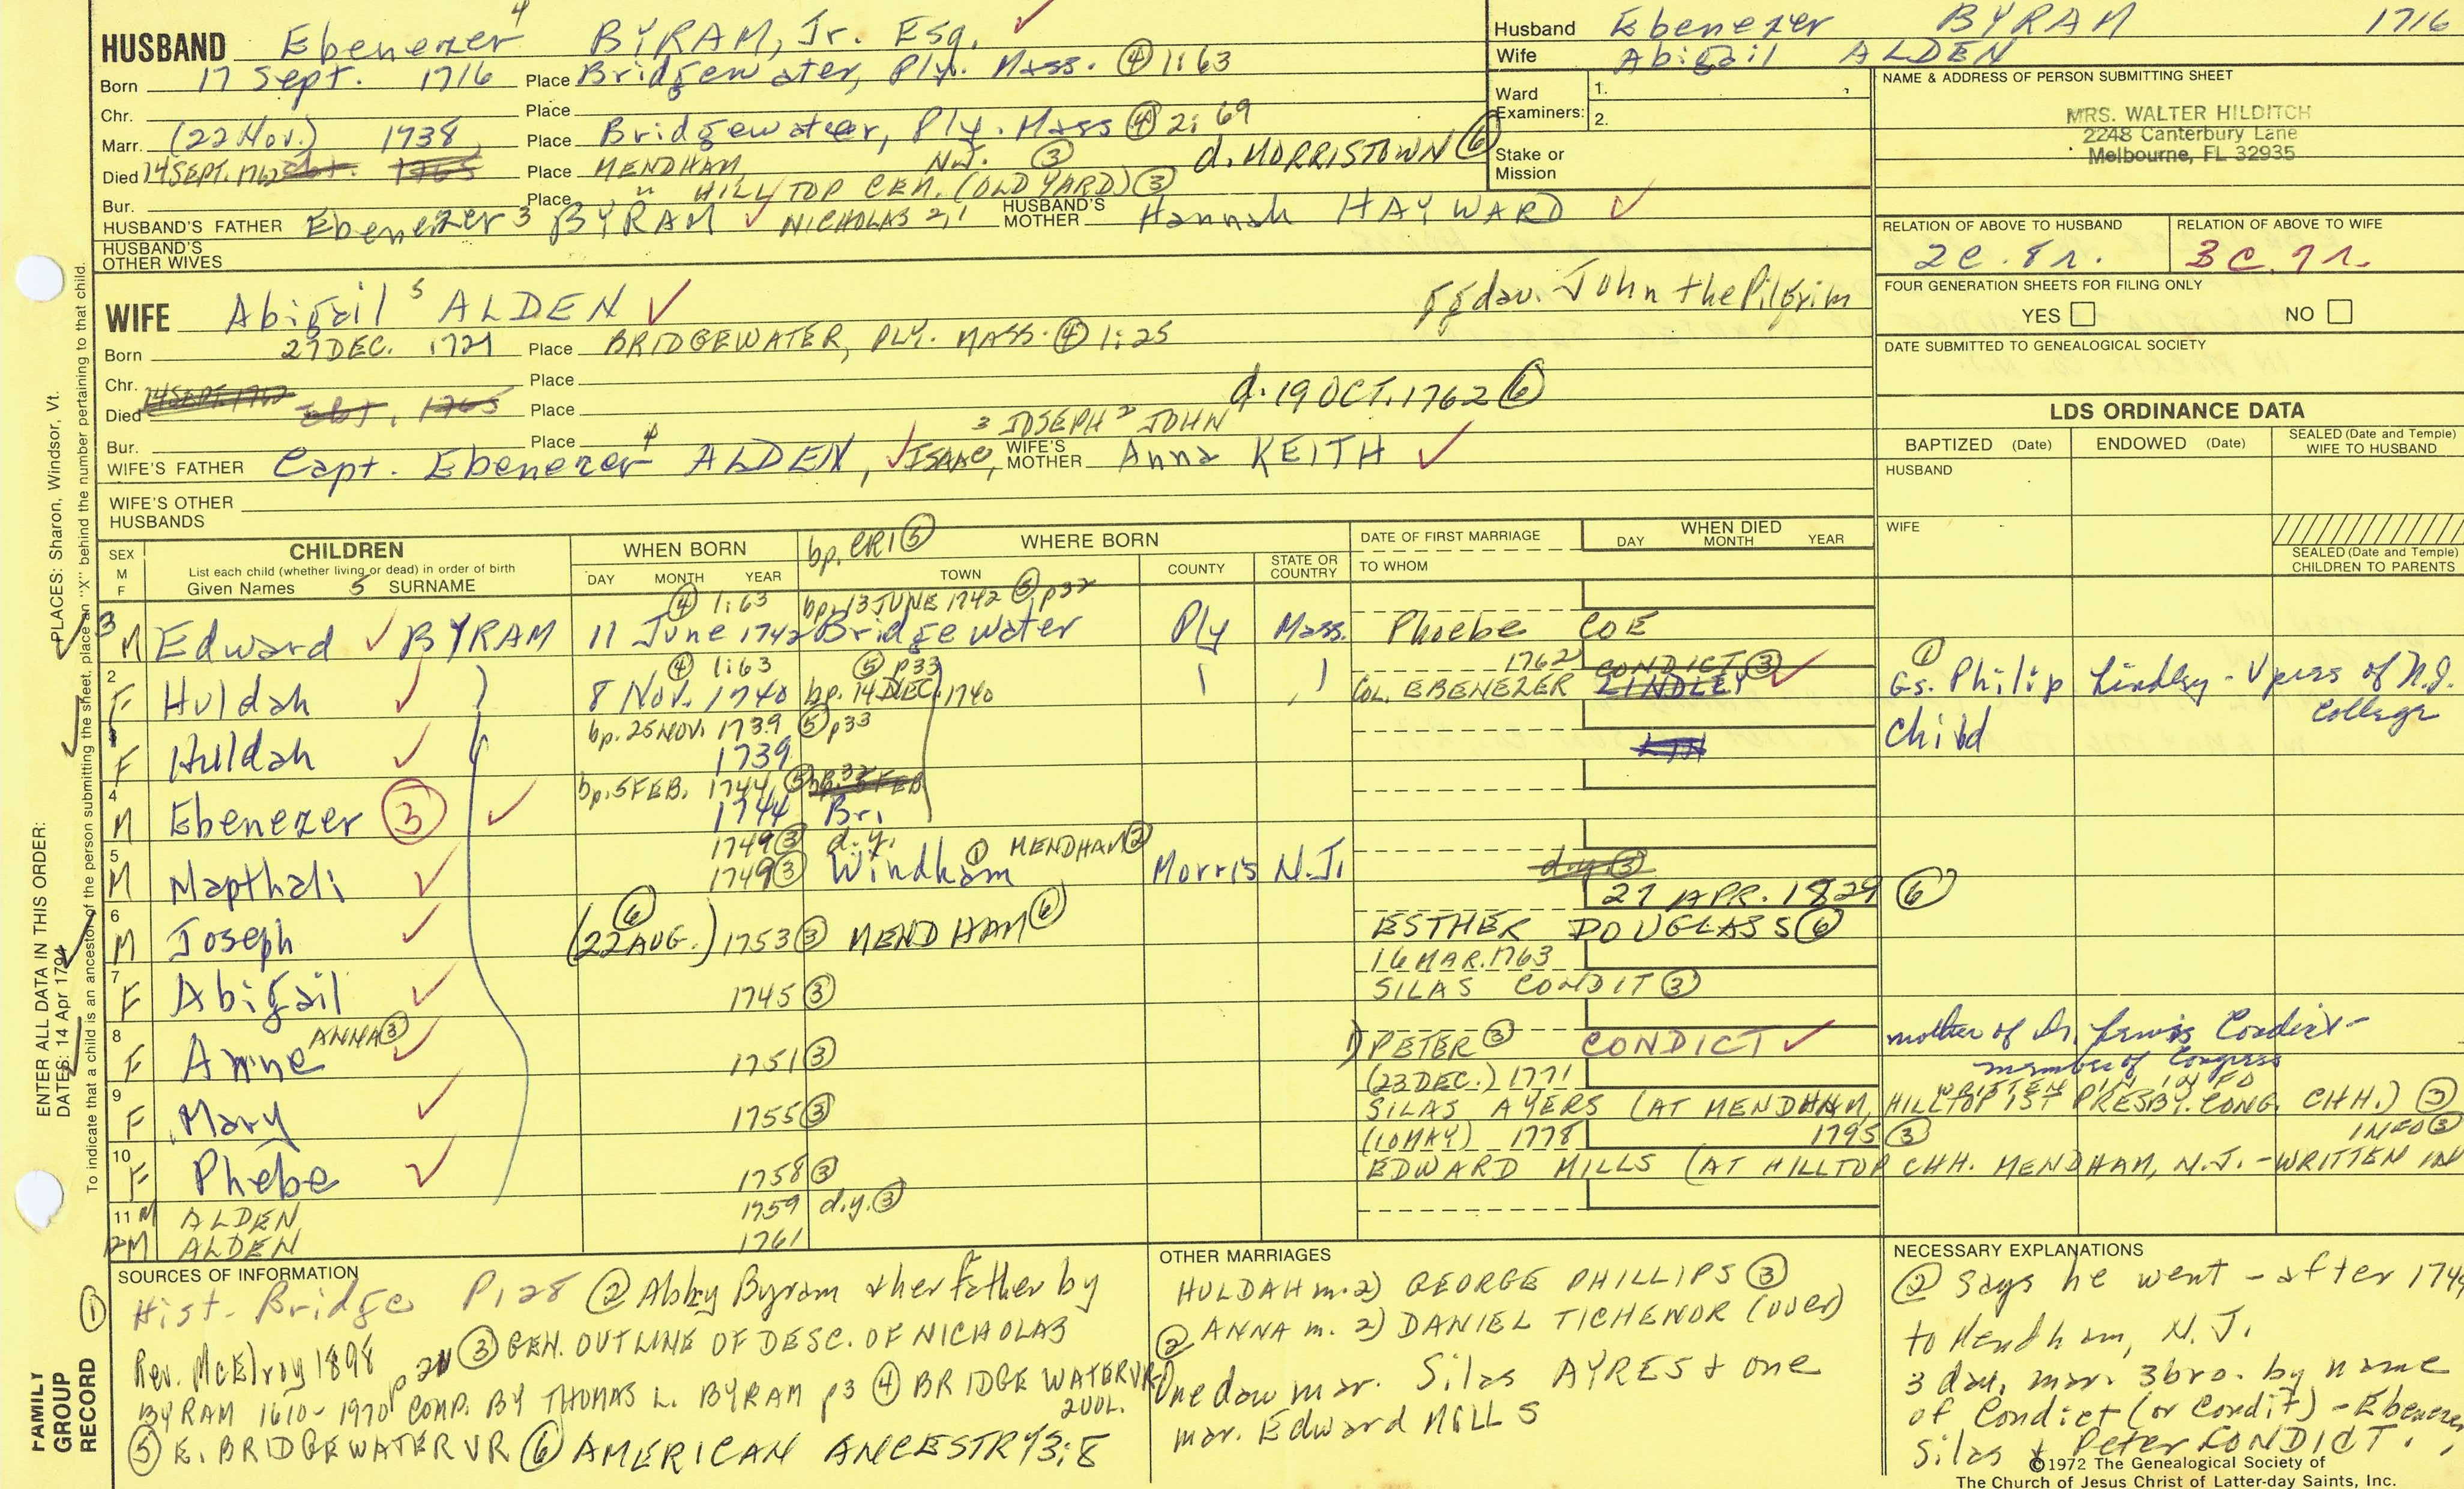 HUSBAND Ebenezer 4 BYRAM, Jr. Esq. ✓
Born 17 Sept. 1716 Place Bridgewater, Ply. Mass. ④ 1:63
Chr. Place
Marr. (22 Nov.) 1738 Place Bridgewater, Ply. Mass ④ 2:69
Died 14 SEPT. 1762 abt. 1765 Place MENDHAM, N.J. ③ d. MORRISTOWN ⑥
Bur. Place " HILLTOP CEM. (OLD YARD) ③
HUSBAND'S FATHER Ebenezer 3 BYRAM ✓ NICHOLAS 2,1 HUSBAND'S MOTHER Hannah HAYWARD ✓
HUSBAND'S OTHER WIVES
Husband Ebenezer BYRAM 1716
Wife Abigail ALDEN
Ward Examiners: 1.
2.
Stake or Mission
NAME & ADDRESS OF PERSON SUBMITTING SHEET
MRS. WALTER HILDITCH
2248 Canterbury Lane
Melbourne, FL 32935
RELATION OF ABOVE TO HUSBAND RELATION OF ABOVE TO WIFE
2C. 8r. 3C. 7r.
FOUR GENERATION SHEETS FOR FILING ONLY
YES NO
DATE SUBMITTED TO GENEALOGICAL SOCIETY
WIFE Abigail 5 ALDEN ✓ ggdau. John the Pilgrim
Born 27 DEC. 1721 Place BRIDGEWATER, PLY. MASS. ④ 1:25
Chr. Place
Died 14 SEPT. 1762 abt. 1765 Place d. 19 OCT. 1762 ⑥
Bur. Place 3 JOSEPH 2 JOHN
WIFE'S FATHER Capt. Ebenezer 4 ALDEN, ✓ ISAAC, WIFE'S MOTHER Anna KEITH ✓
WIFE'S OTHER HUSBANDS
LDS ORDINANCE DATA
BAPTIZED (Date) ENDOWED (Date) SEALED (Date and Temple) WIFE TO HUSBAND
HUSBAND
WIFE
SEALED (Date and Temple) CHILDREN TO PARENTS
SEX M F CHILDREN WHEN BORN bp. CR1 ⑤ WHERE BORN DATE OF FIRST MARRIAGE WHEN DIED
List each child (whether living or dead) in order of birth
Given Names 5 SURNAME DAY MONTH YEAR TOWN COUNTY STATE OR COUNTRY TO WHOM DAY MONTH YEAR
④ 1:63 bp. 13 JUNE 1742 ⑤ p32
3 M Edward ✓ BYRAM 11 June 1742 Bridgewater Ply Mass. Phoebe COE
④ 1:63 ⑤ p33 1762 CONDICT ③
2 F Huldah ✓ 8 Nov. 1740 bp. 14 DEC. 1740 COL. EBENEZER LINDLEY ✓ ① Gs. Philip Lindley - V press of N.J. College
bp. 25 NOV. 1739 ⑤ p33
F Huldah ✓ 1739 child
bp. 5 FEB. 1744 ⑤ 32
4 M Ebenezer ③ ✓ 1744 Bri
1749 ③ d.y. ① MENDHAM ③
5 M Mapthali ✓ 1749 ③ Windham Morris N.J. d.y. ③
27 APR. 1829 ⑥
6 M Joseph ✓ (22 AUG.) ⑥ 1753 ③ MENDHAM ⑥ ESTHER DOUGLASS ⑥
16 MAR. 1763
7 F Abigail ✓ 1745 ③ SILAS CONDIT ③
8 F Anne ANNA ③ ✓ 1751 ③ 1) PETER ③ CONDICT ✓ mother of Dr. Lewis Condict - member of Congress
(23 DEC.) 1771
9 F Mary ✓ 1755 ③ SILAS AYERS (AT MENDHAM, HILLTOP 1ST PRESBY. CONG. CHH.) ③
(10 MAY) 1778 1795 ③ INFO ③
10 F Phebe ✓ 1758 ③ EDWARD MILLS (AT HILLTOP CHH. MENDHAM, N.J. - WRITTEN IN
11 M ALDEN 1759 d.y. ③
12 M ALDEN 1761
SOURCES OF INFORMATION
① Hist. Bridge P128 ② Abby Byram & her father by
Rev. McElroy 1898 p 21 ③ GEN. OUTLINE OF DESC. OF NICHOLAS
BYRAM 1610-1970 COMP. BY THOMAS L. BYRAM p3 ④ BRIDGEWATER VR 2 VOL.
⑤ E. BRIDGEWATER VR ⑥ AMERICAN ANCESTRY 3:8
OTHER MARRIAGES
HULDAH m. 2) GEORGE PHILLIPS ③
ANNA m. 2) DANIEL TICHENOR (over)
② One dau mar. Silas AYRES & one
mar. Edward MILLS
NECESSARY EXPLANATIONS
② Says he went - after 1744
to Mendham, N.J.
3 dau. mar. 3 bro. by name
of Condict (or Condit) - Ebenezer,
Silas & Peter CONDICT.
©1972 The Genealogical Society of
The Church of Jesus Christ of Latter-day Saints, Inc.
FAMILY GROUP RECORD
ENTER ALL DATA IN THIS ORDER:
DATES: 14 Apr 1794 PLACES: Sharon, Windsor, Vt.
To indicate that a child is an ancestor of the person submitting the sheet, place an "X" behind the number pertaining to that child.